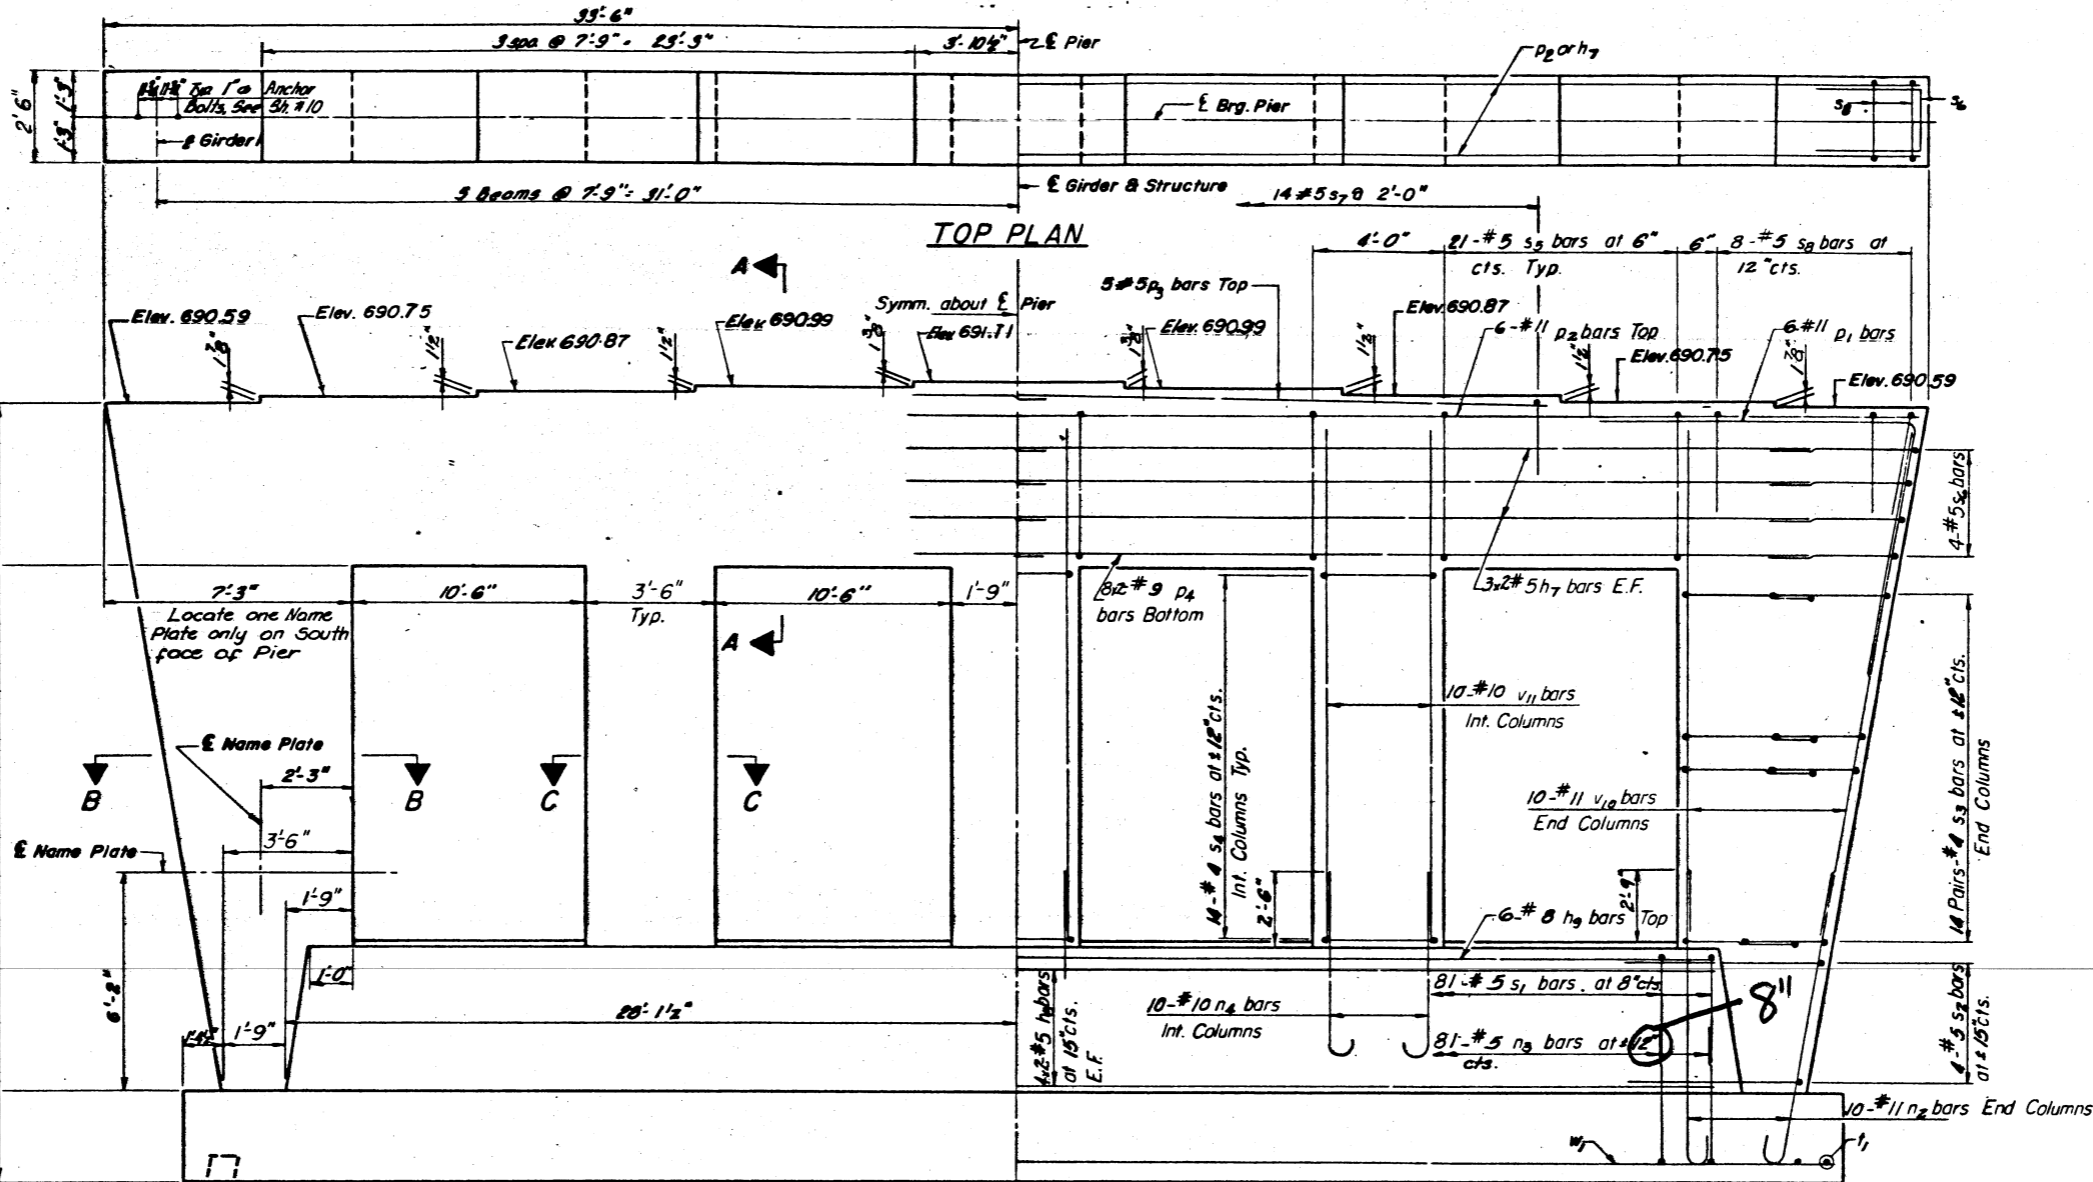 33'-6"
3 spa @ 7'-9" = 23'-3"
3'-10½"
℄ Pier
p2 or h7
2'-6"
1'-3"
1'-3"
Typ. 1" ⌀ Anchor
Bolts, See Sh. #10
℄ Girder
℄ Brg. Pier
s8
s6
3 Beams @ 7'-9" = 31'-0"
℄ Girder & Structure
14 #5 s7 @ 2'-0"
TOP PLAN
4'-0"
21-#5 s5 bars at 6"
cts. Typ.
6"
8-#5 s8 bars at
12"cts.
A
5-#5 p3 bars Top
Symm. about ℄ Pier
Elev. 690.59
Elev. 690.75
Elev. 690.87
Elev. 690.99
Elev. 691.11
Elev. 690.99
Elev. 690.87
6-#11 p2 bars Top
Elev. 690.75
6-#11 p1 bars
Elev. 690.59
1⅞"
1½"
1½"
1⅜"
1⅜"
1½"
1½"
1⅞"
4-#5 s6 bars
7'-3"
10'-6"
3'-6"
Typ.
10'-6"
1'-9"
Locate one Name
Plate only on South
face of Pier
A
8x2-#9 p4
bars Bottom
3x2#5 h7 bars E.F.
14-#4 s4 bars at ±12"cts.
Int. Columns Typ.
10-#10 v11 bars
Int. Columns
10-#11 v10 bars
End Columns
14 Pairs-#4 s3 bars at ±12"cts.
End Columns
℄ Name Plate
2'-3"
B
B
C
C
3'-6"
℄ Name Plate
1'-9"
2'-6"
2'-9"
6-#8 h9 bars Top
6'-2"
1'-0"
1'-9"
28'-1½"
4x2-#5 h8 bars
at 15"cts.
E.F.
10-#10 n4 bars
Int. Columns
81-#5 s1 bars. at 8"cts.
81-#5 n3 bars at ±12"
cts.
8"
4-#5 s2 bars
at ±15"cts.
10-#11 n2 bars End Columns
w1
t1